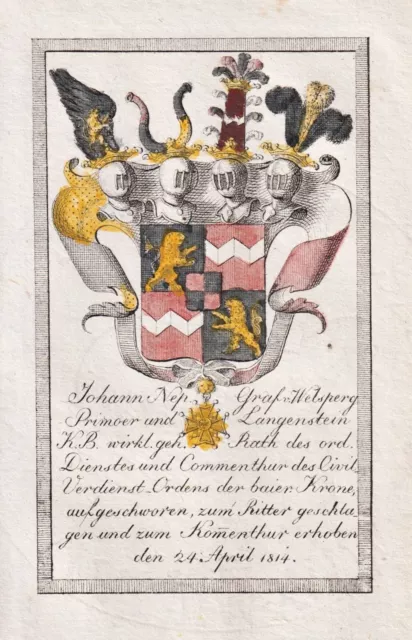 Johann Nep. Graf v. Welsperg
Primoer und Langenstein
K.B. wirkl. geh. Rath des ord.
Dienstes und Commenthur des Civil
Verdienst-Ordens der baier. Krone,
aufgeschworen, zum Ritter geschla
gen und zum Kom̄enthur erhoben
den 24. April 1814.